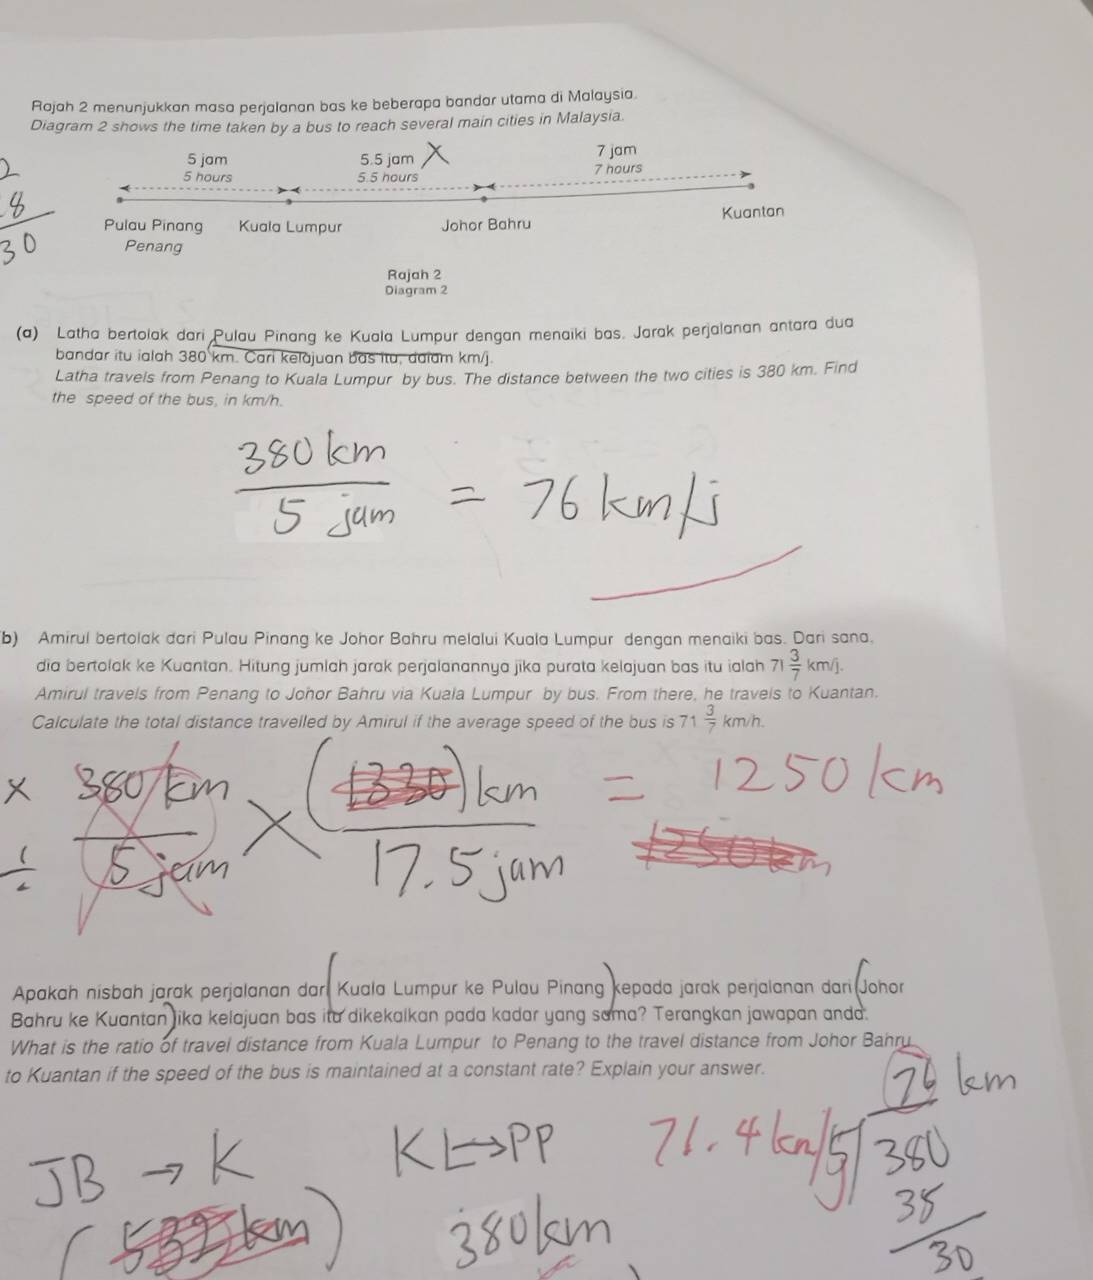 Rajah 2 menunjukkan masa perjalanan bas ke beberapa bandar utama di Malaysia.
Diagram 2 shows the time taken by a bus to reach several main cities in Malaysia.
5 jam 5.5 jam X 7 jam
5 hours 5.5 hours 7 hours
2
8
30
Pulau Pinang Kuala Lumpur Johor Bahru Kuantan
Penang
Rajah 2
Diagram 2
(a) Latha bertolak dari Pulau Pinang ke Kuala Lumpur dengan menaiki bas. Jarak perjalanan antara dua
bandar itu ialah 380 km. Cari kelajuan bas itu, dalam km/j.
Latha travels from Penang to Kuala Lumpur by bus. The distance between the two cities is 380 km. Find
the speed of the bus, in km/h.
380 km
5 jam = 76 km/j
b) Amirul bertolak dari Pulau Pinang ke Johor Bahru melalui Kuala Lumpur dengan menaiki bas. Dari sana,
dia bertolak ke Kuantan. Hitung jumlah jarak perjalanannya jika purata kelajuan bas itu ialah 71 3/7 km/j.
Amirul travels from Penang to Johor Bahru via Kuala Lumpur by bus. From there, he travels to Kuantan.
Calculate the total distance travelled by Amirul if the average speed of the bus is 71 3/7 km/h.
x 380 km x (1330) km = 1250 km
÷ 5 jam 17.5 jam 1250km
Apakah nisbah jarak perjalanan dari Kuala Lumpur ke Pulau Pinang kepada jarak perjalanan dari Johor
Bahru ke Kuantan jika kelajuan bas itu dikekalkan pada kadar yang sama? Terangkan jawapan anda.
What is the ratio of travel distance from Kuala Lumpur to Penang to the travel distance from Johor Bahru
to Kuantan if the speed of the bus is maintained at a constant rate? Explain your answer.
76 km
JB → K KL → PP 71.4 km/j 5 380
38
(532 km) 380km 30